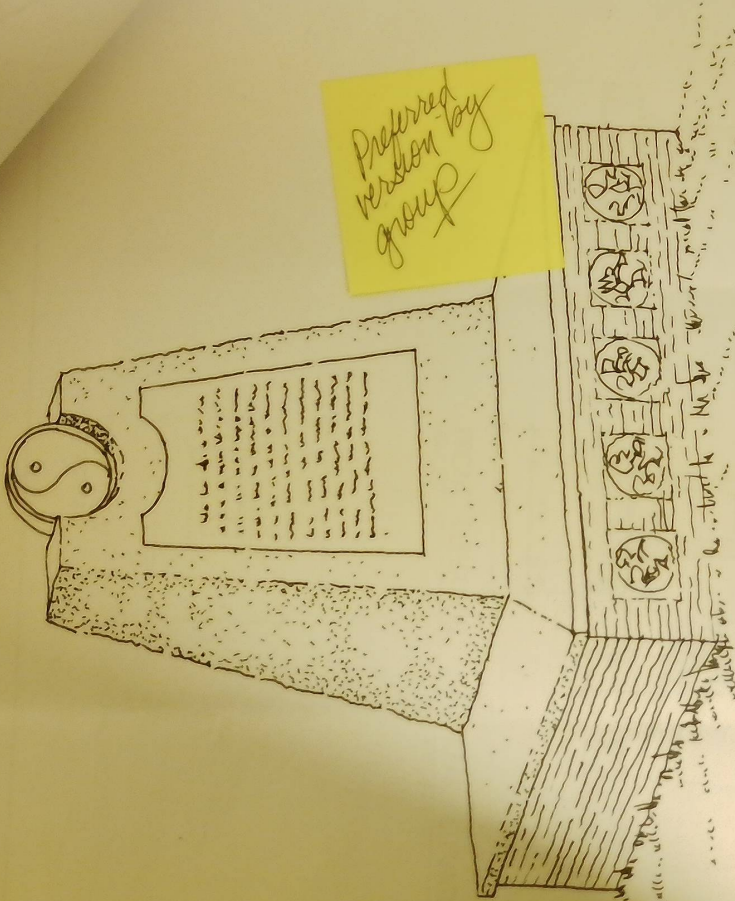 Preferred
version by
group